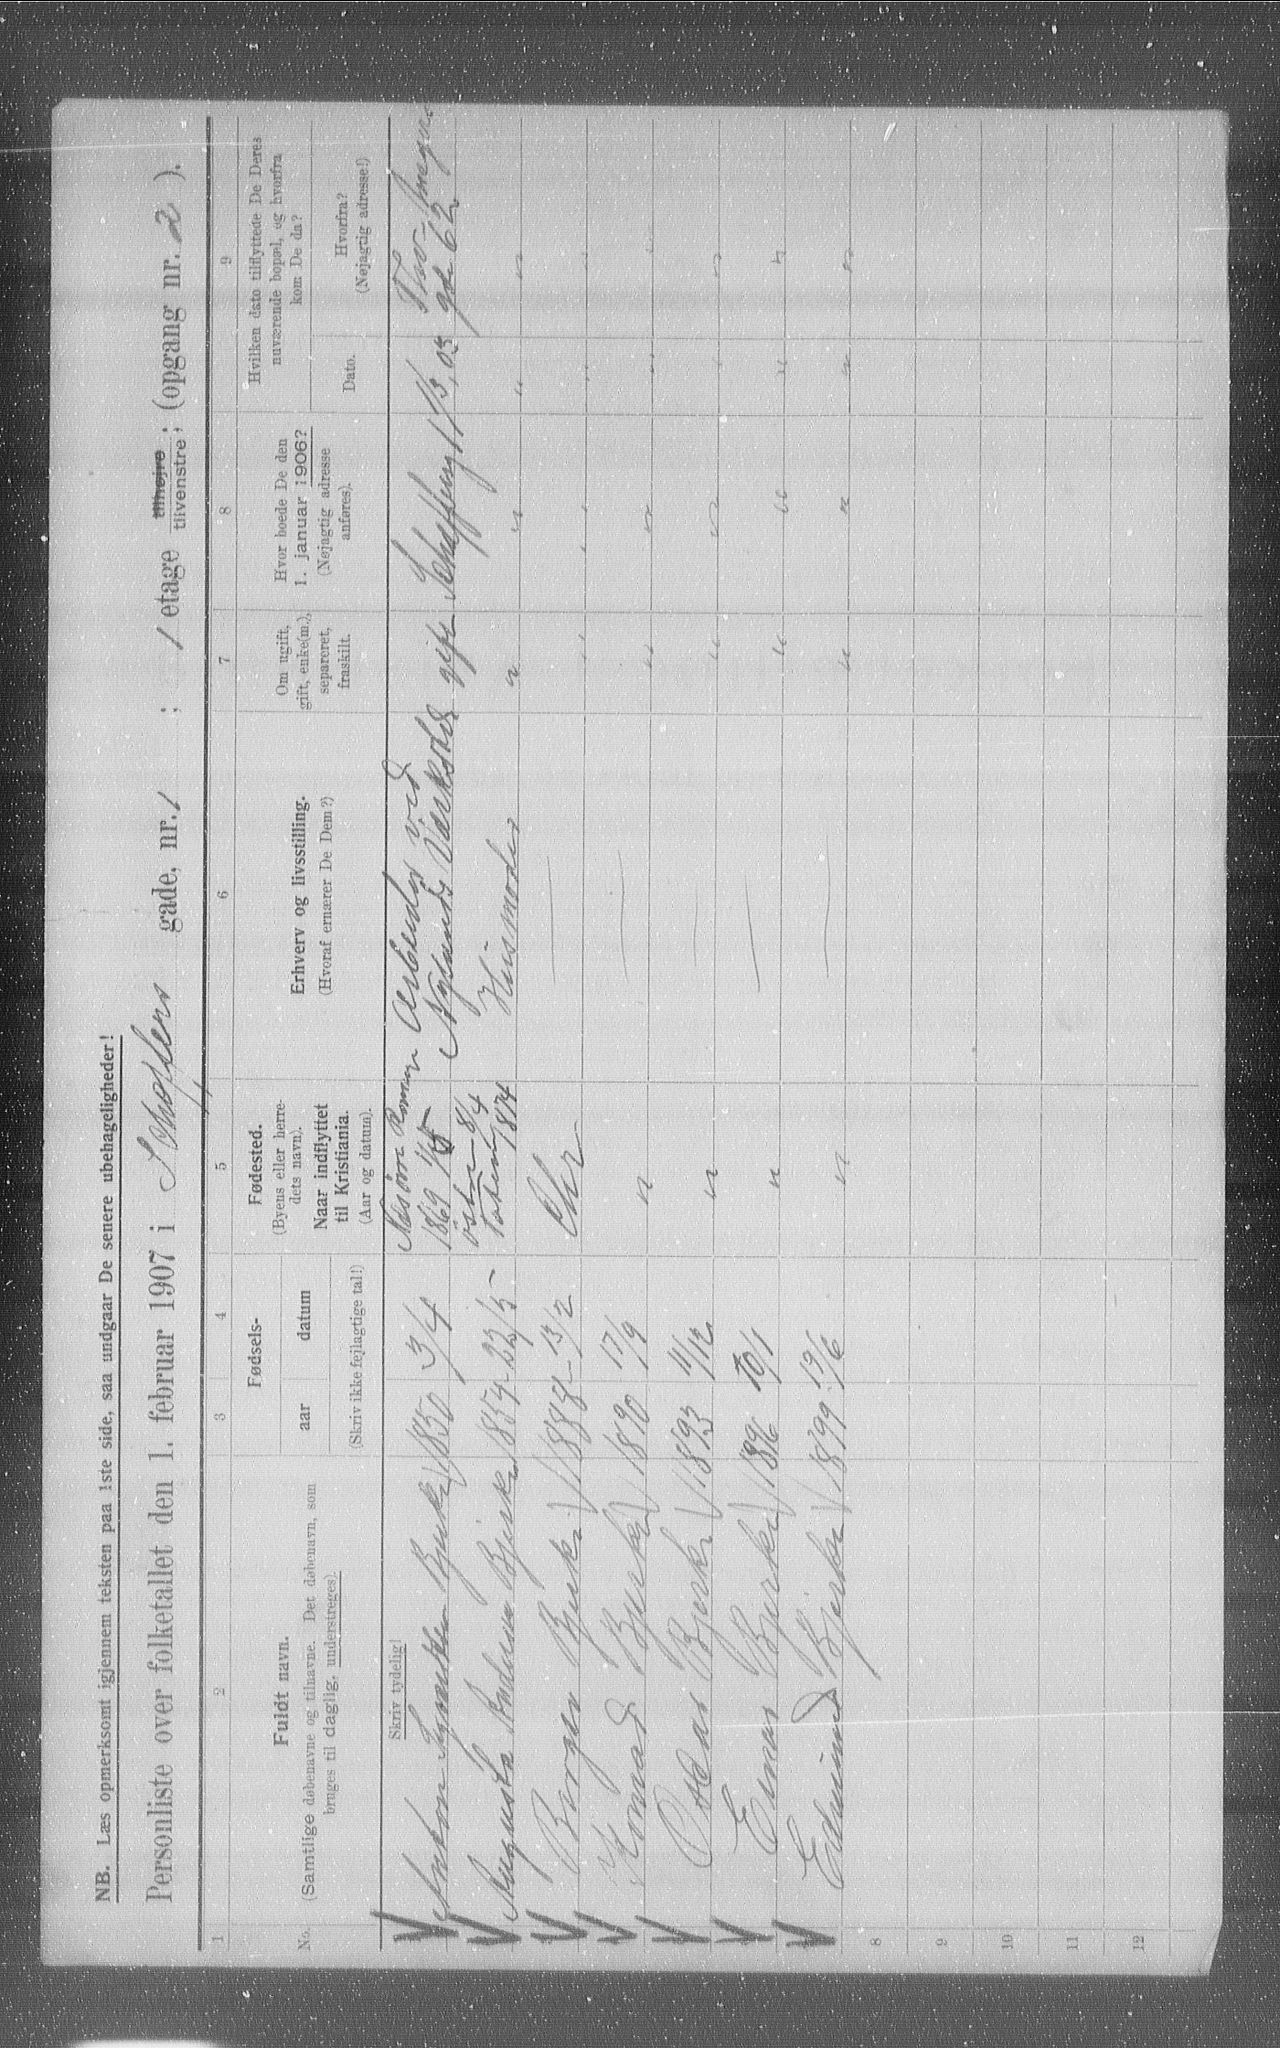 NB. Læs opmerksomt igjennem teksten paa 1ste side, saa undgaar De senere ubehageligheder!
Personliste over folketallet den 1. februar 1907 i gade, nr. 1 ; 1 etage tilhøjre tilvenstre ; (opgang nr. 2 ).
1 2 3 4 5 6 7 8 9
No.
Fuldt navn.
(Samtlige døbenavne og tilnavne. Det døbenavn, som
bruges til daglig, understreges).
Fødsels-
aar datum
(Skriv ikke fejlagtige tal!)
Fødested.
(Byens eller herre-
dets navn).
Naar indflyttet
til Kristiania.
(Aar og datum).
Erhverv og livsstilling.
(Hvoraf ernærer De Dem?)
Om ugift,
gift, enke(m.),
separeret,
fraskilt.
Hvor boede De den
1. januar 1906?
(Nøjagtig adresse
anføres).
Hvilken dato tilflyttede De Deres
nuværende bopæl, og hvorfra
kom De da?
Dato.
Hvorfra?
(Nøjagtig adresse!)
Skriv tydelig!
Anton Bjerke 1850 3/4 1869 Arbeider ved
Nylands Værksted gift 1/3, 03 gd. 62
Augusta Bjerke 1854 - 22/5 - 8/4 1874 Husmoder " " " "
Borgar Bjerke 1888 - 13/2 Chr
Konrad Bjerke 1890 17/9 " " " " "
Oskar Bjerke 1893 11/12 " " " " "
Einar Bjerke 1896 10/1 " " " " "
Edmund Bjerke 1899 19/6 " " " " "
8
9
10
11
12